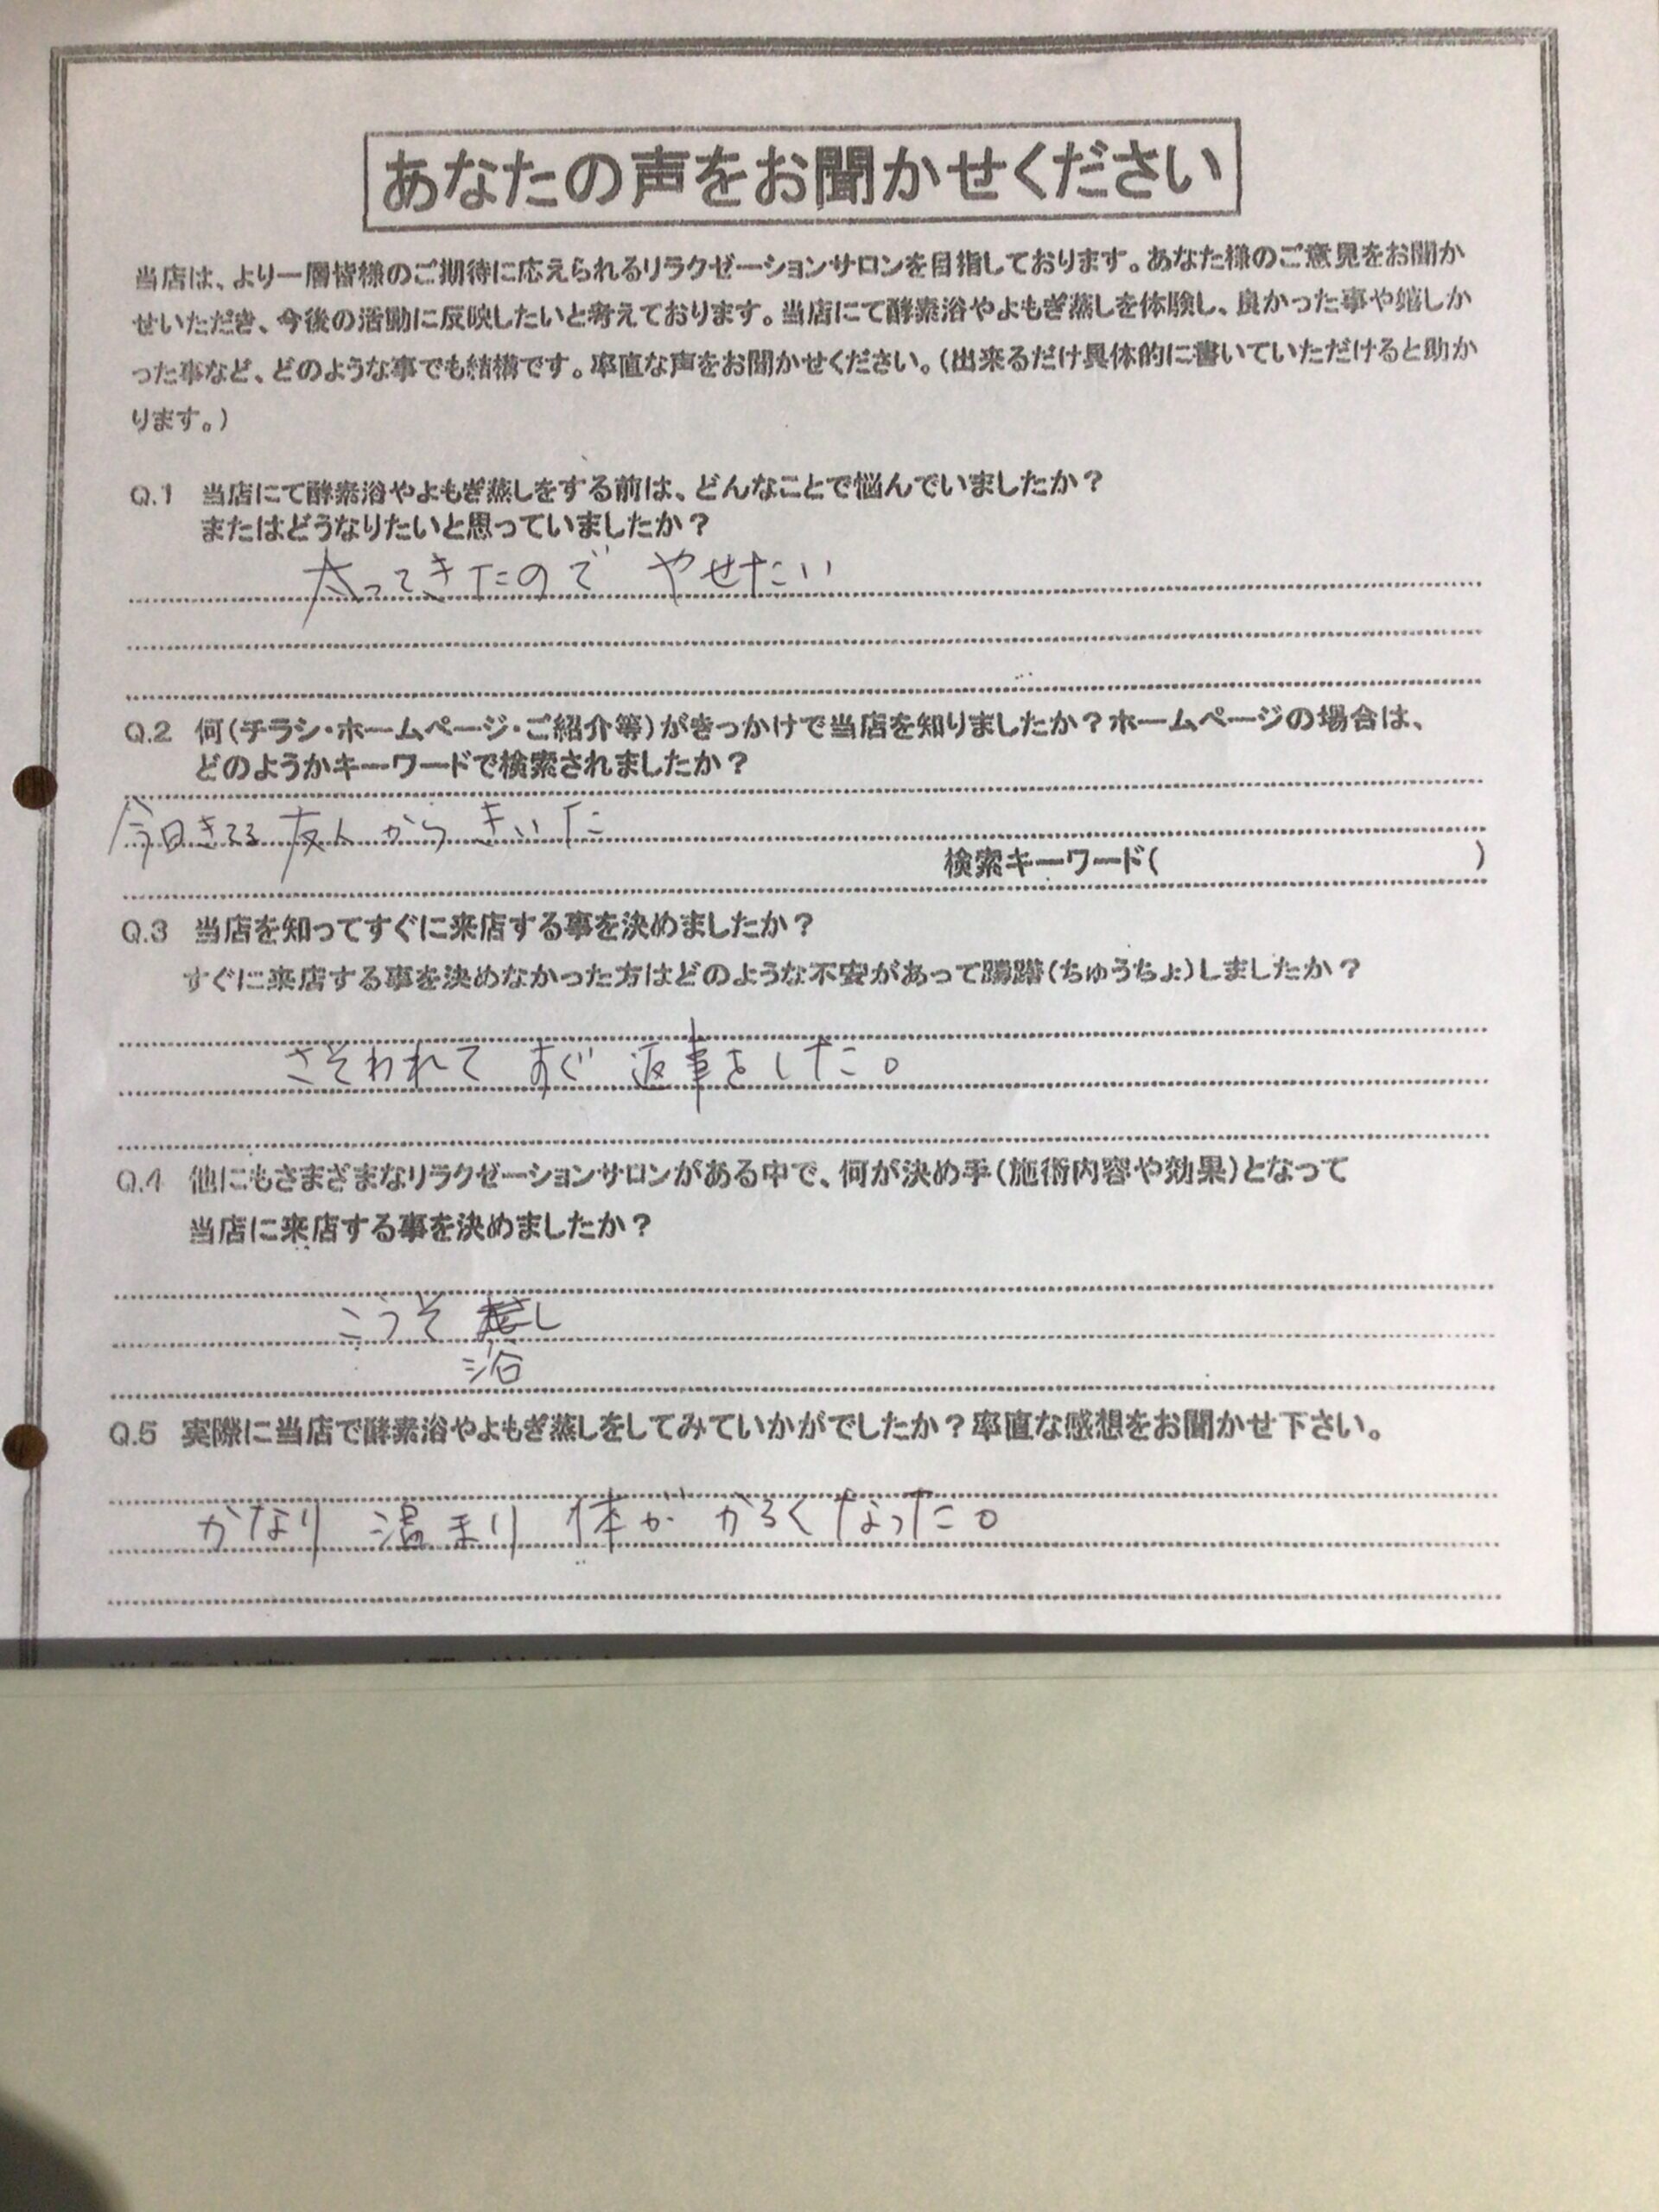 あなたの声をお聞かせください
当店は、より一層皆様のご期待に応えられるリラクゼーションサロンを目指しております。あなた様のご意見をお聞か
せいただき、今後の活動に反映したいと考えております。当店にて酵素浴やよもぎ蒸しを体験し、良かった事や嬉しか
った事など、どのような事でも結構です。率直な声をお聞かせください。(出来るだけ具体的に書いていただけると助か
ります。)
Q.1 当店にて酵素浴やよもぎ蒸しをする前は、どんなことで悩んでいましたか?
またはどうなりたいと思っていましたか?
太ってきたので やせたい
Q.2 何(チラシ・ホームページ・ご紹介等)がきっかけで当店を知りましたか?ホームページの場合は、
どのようかキーワードで検索されましたか?
今日きてる 友人 から きいた
検索キーワード( )
Q.3 当店を知ってすぐに来店する事を決めましたか?
すぐに来店する事を決めなかった方はどのような不安があって躊躇(ちゅうちょ)しましたか?
さそわれて すぐ 返事をした。
Q.4 他にもさまざまなリラクゼーションサロンがある中で、何が決め手(施術内容や効果)となって
当店に来店する事を決めましたか?
こうそ
浴
Q.5 実際に当店で酵素浴やよもぎ蒸しをしてみていかがでしたか?率直な感想をお聞かせ下さい。
かなり 温まり 体が かるくなった。